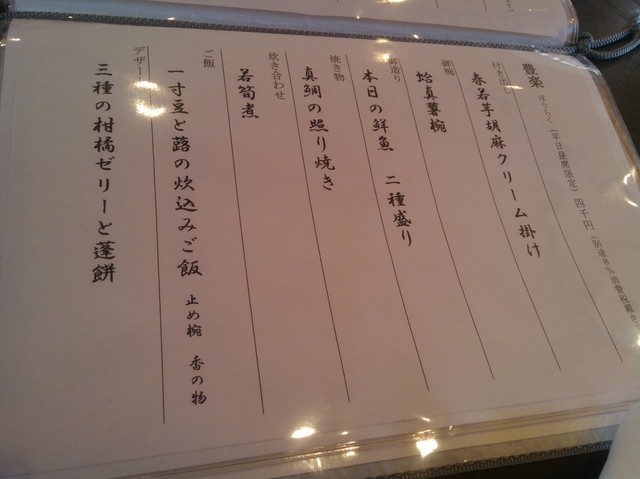 豊楽 ほうらく (平日昼席限定) 四千円 (別途8%消費税戴き
付き出し
春若芋胡麻クリーム掛け
御椀
蛤真薯椀
御造り
本日の鮮魚 二種盛り
焼き物
真鯛の照り焼き
炊き合わせ
若筍煮
ご飯
一寸豆と蕗の炊込みご飯 止め椀 香の物
デザート
三種の柑橘ゼリーと蓬餅